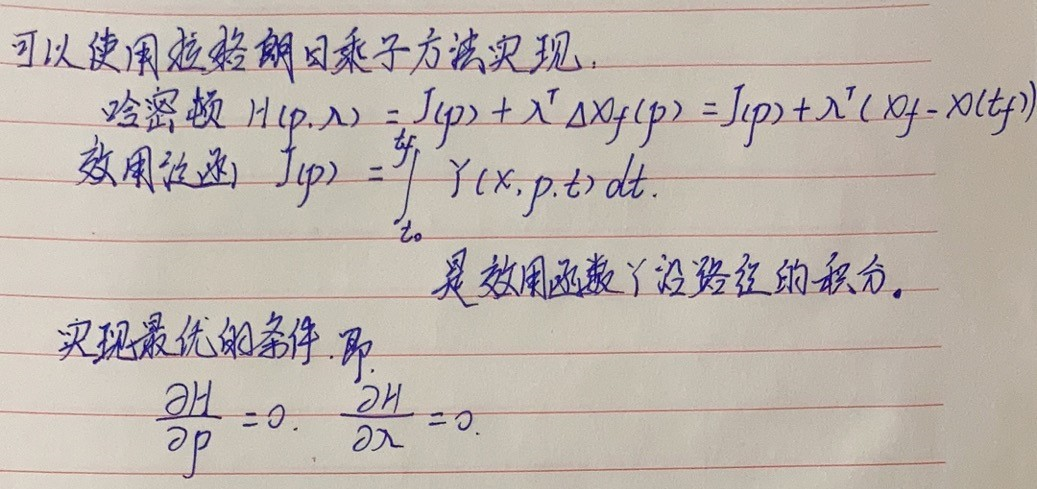 可以使用拉格朗日乘子方法实现.
哈密顿 H(p,λ) = J(p) + λᵀ ΔX_f(p) = J(p) + λᵀ (X_f - X(t_f))
效用泛函 J(p) = ∫_{t_0}^{t_f} Υ(x, p, t) dt.
是效用函数Υ沿路径的积分。
实现最优的条件. 即.
∂H/∂p = 0. ∂H/∂λ = 0.